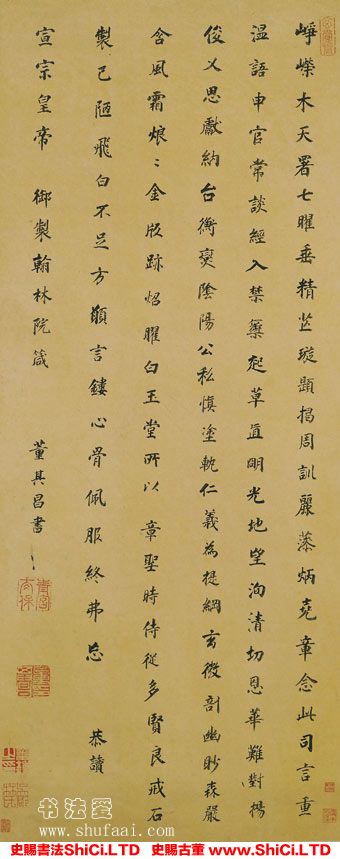 峥嶸木天署七曜垂精芒璇題揭周訓麗藻炳堯章念此司言重
温語申官常談經入禁籞起草直明光地望洵清切恩華難對揚
俊乂思獻納台衡爕陰陽公私慎塗軌仁義為提綱玄微剖幽眇森嚴
含風霜烺〻金版跡炤曜白玉堂所以章聖時侍從多賢良戒石
製已陋飛白不足方願言鏤心骨佩服終弗忘 恭讀
宣宗皇帝 御製翰林院箴
董其昌書
书法爱
www.shufaai.com
史賜書法ShiCi.LTD 史賜古董www.ShiCi.LTD